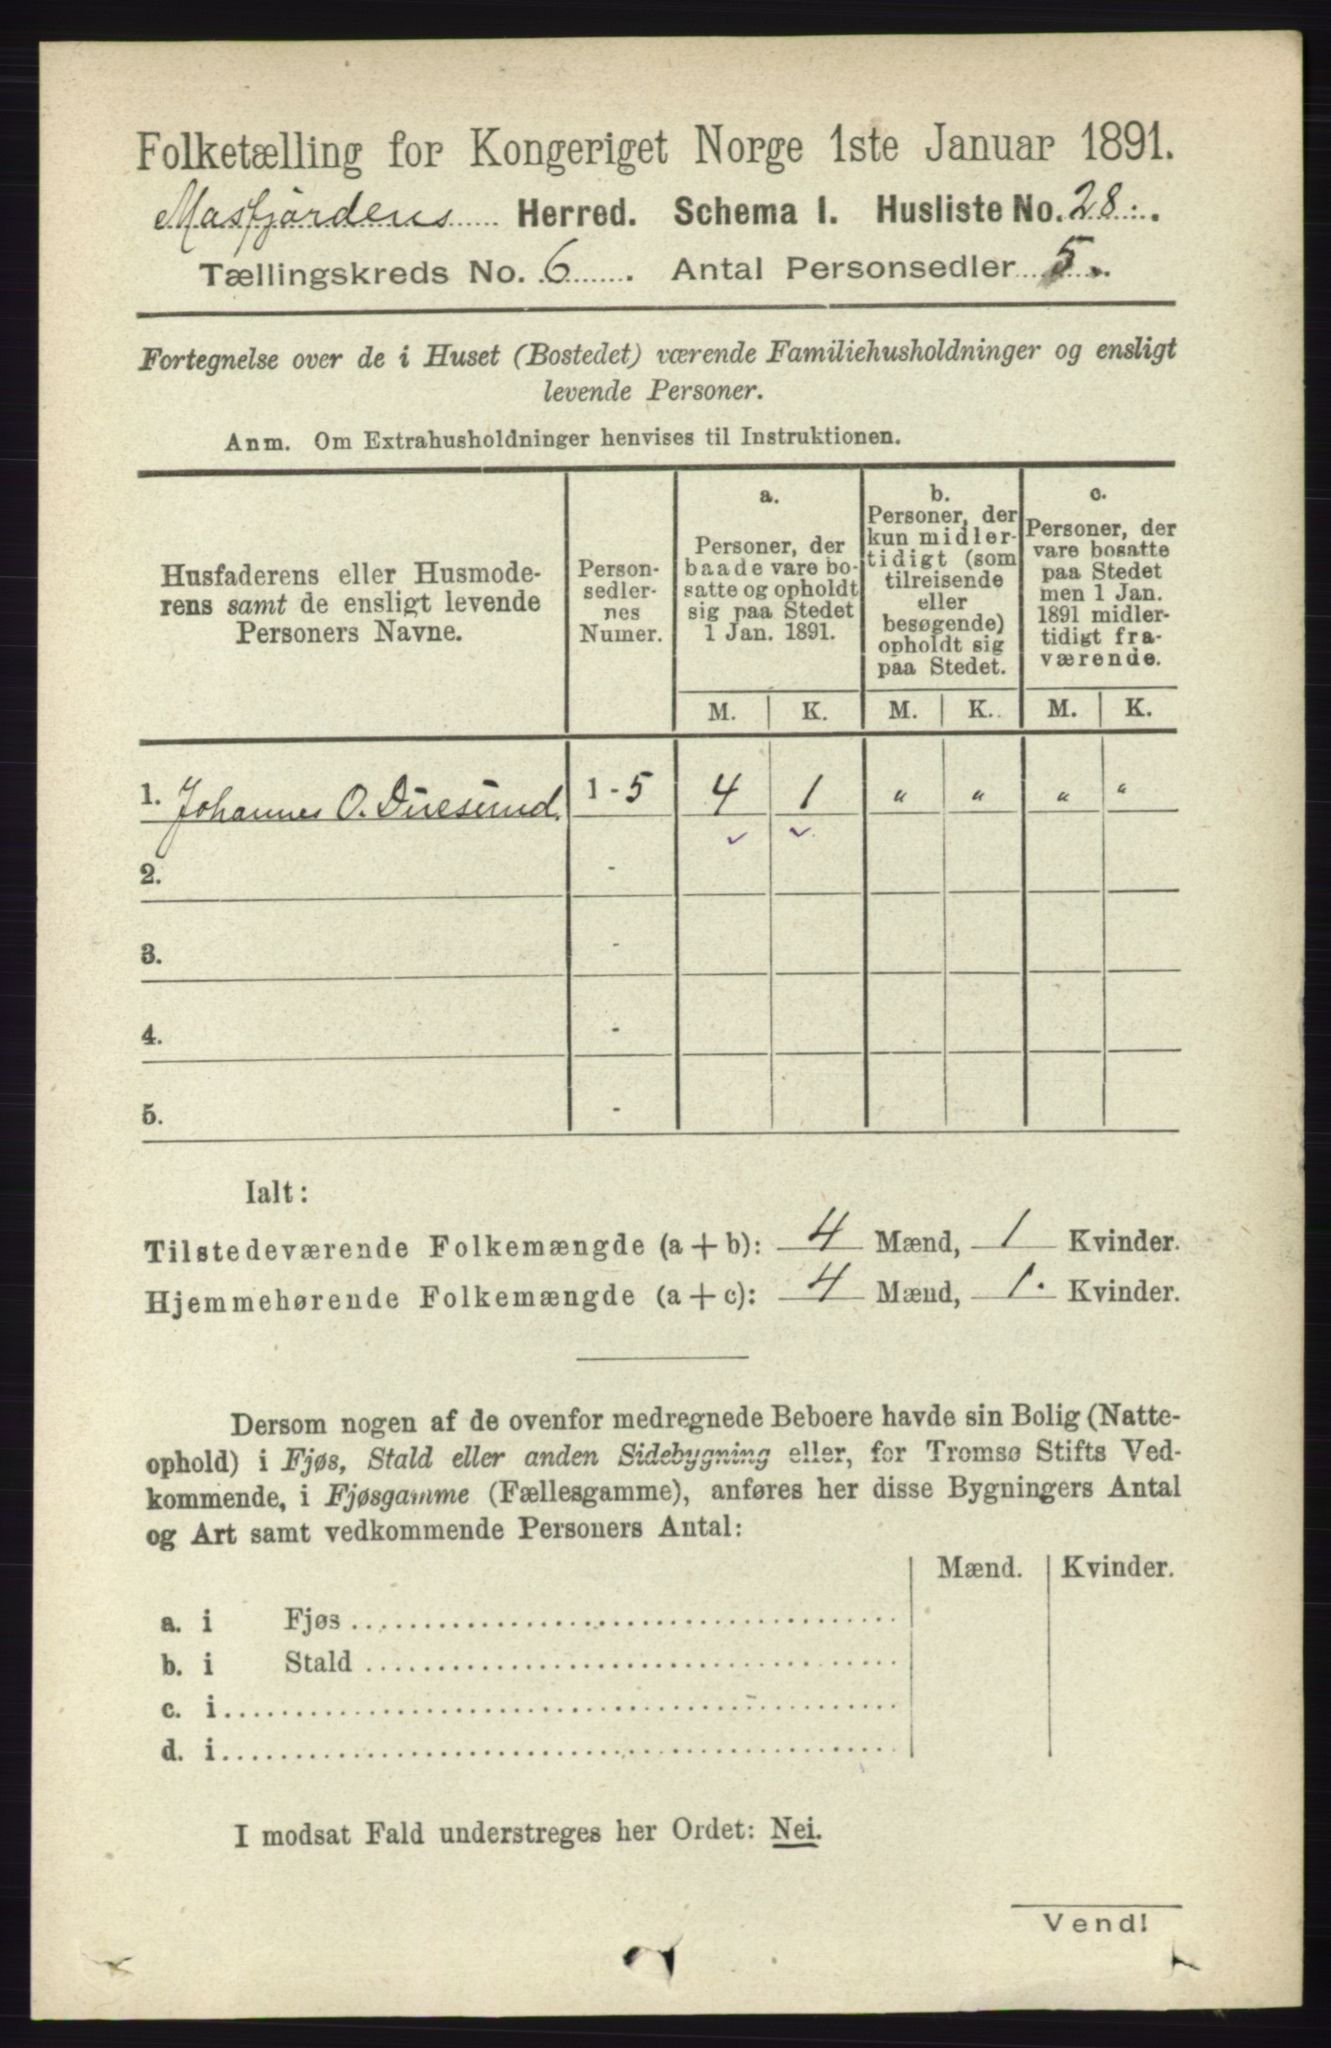 Folketælling for Kongeriget Norge 1ste Januar 1891.
Masfjordens Herred. Schema I. Husliste No. 28.
Tællingskreds No. 6. Antal Personsedler 5.
Fortegnelse over de i Huset (Bostedet) værende Familiehusholdninger og ensligt
levende Personer.
Anm. Om Extrahusholdninger henvises til Instruktionen.
Husfaderens eller Husmode-
rens samt de ensligt levende
Personers Navne.
Person-
sedler-
nes
Numer.
a.
Personer, der
baade vare bo-
satte og opholdt
sig paa Stedet
1 Jan. 1891.
b.
Personer, der
kun midler-
tidigt (som
tilreisende
eller
besøgende)
opholdt sig
paa Stedet.
c.
Personer, der
vare bosatte
paa Stedet
men 1 Jan.
1891 midler-
tidigt fra-
værende.
M. K. M. K. M. K.
1. Johannes O. Duesund. 1 - 5 4 1 " " " "
2. -
3. -
4. -
5. -
Ialt:
Tilstedeværende Folkemængde (a + b): 4 Mænd, 1 Kvinder.
Hjemmehørende Folkemængde (a + c): 4 Mænd, 1. Kvinder.
Dersom nogen af de ovenfor medregnede Beboere havde sin Bolig (Natte-
ophold) i Fjøs, Stald eller anden Sidebygning eller, for Tromsø Stifts Ved-
kommende, i Fjøsgamme (Fællesgamme), anføres her disse Bygningers Antal
og Art samt vedkommende Personers Antal:
Mænd. Kvinder.
a. i Fjøs
b. i Stald
c. i
d. i
I modsat Fald understreges her Ordet: Nei.
Vend!